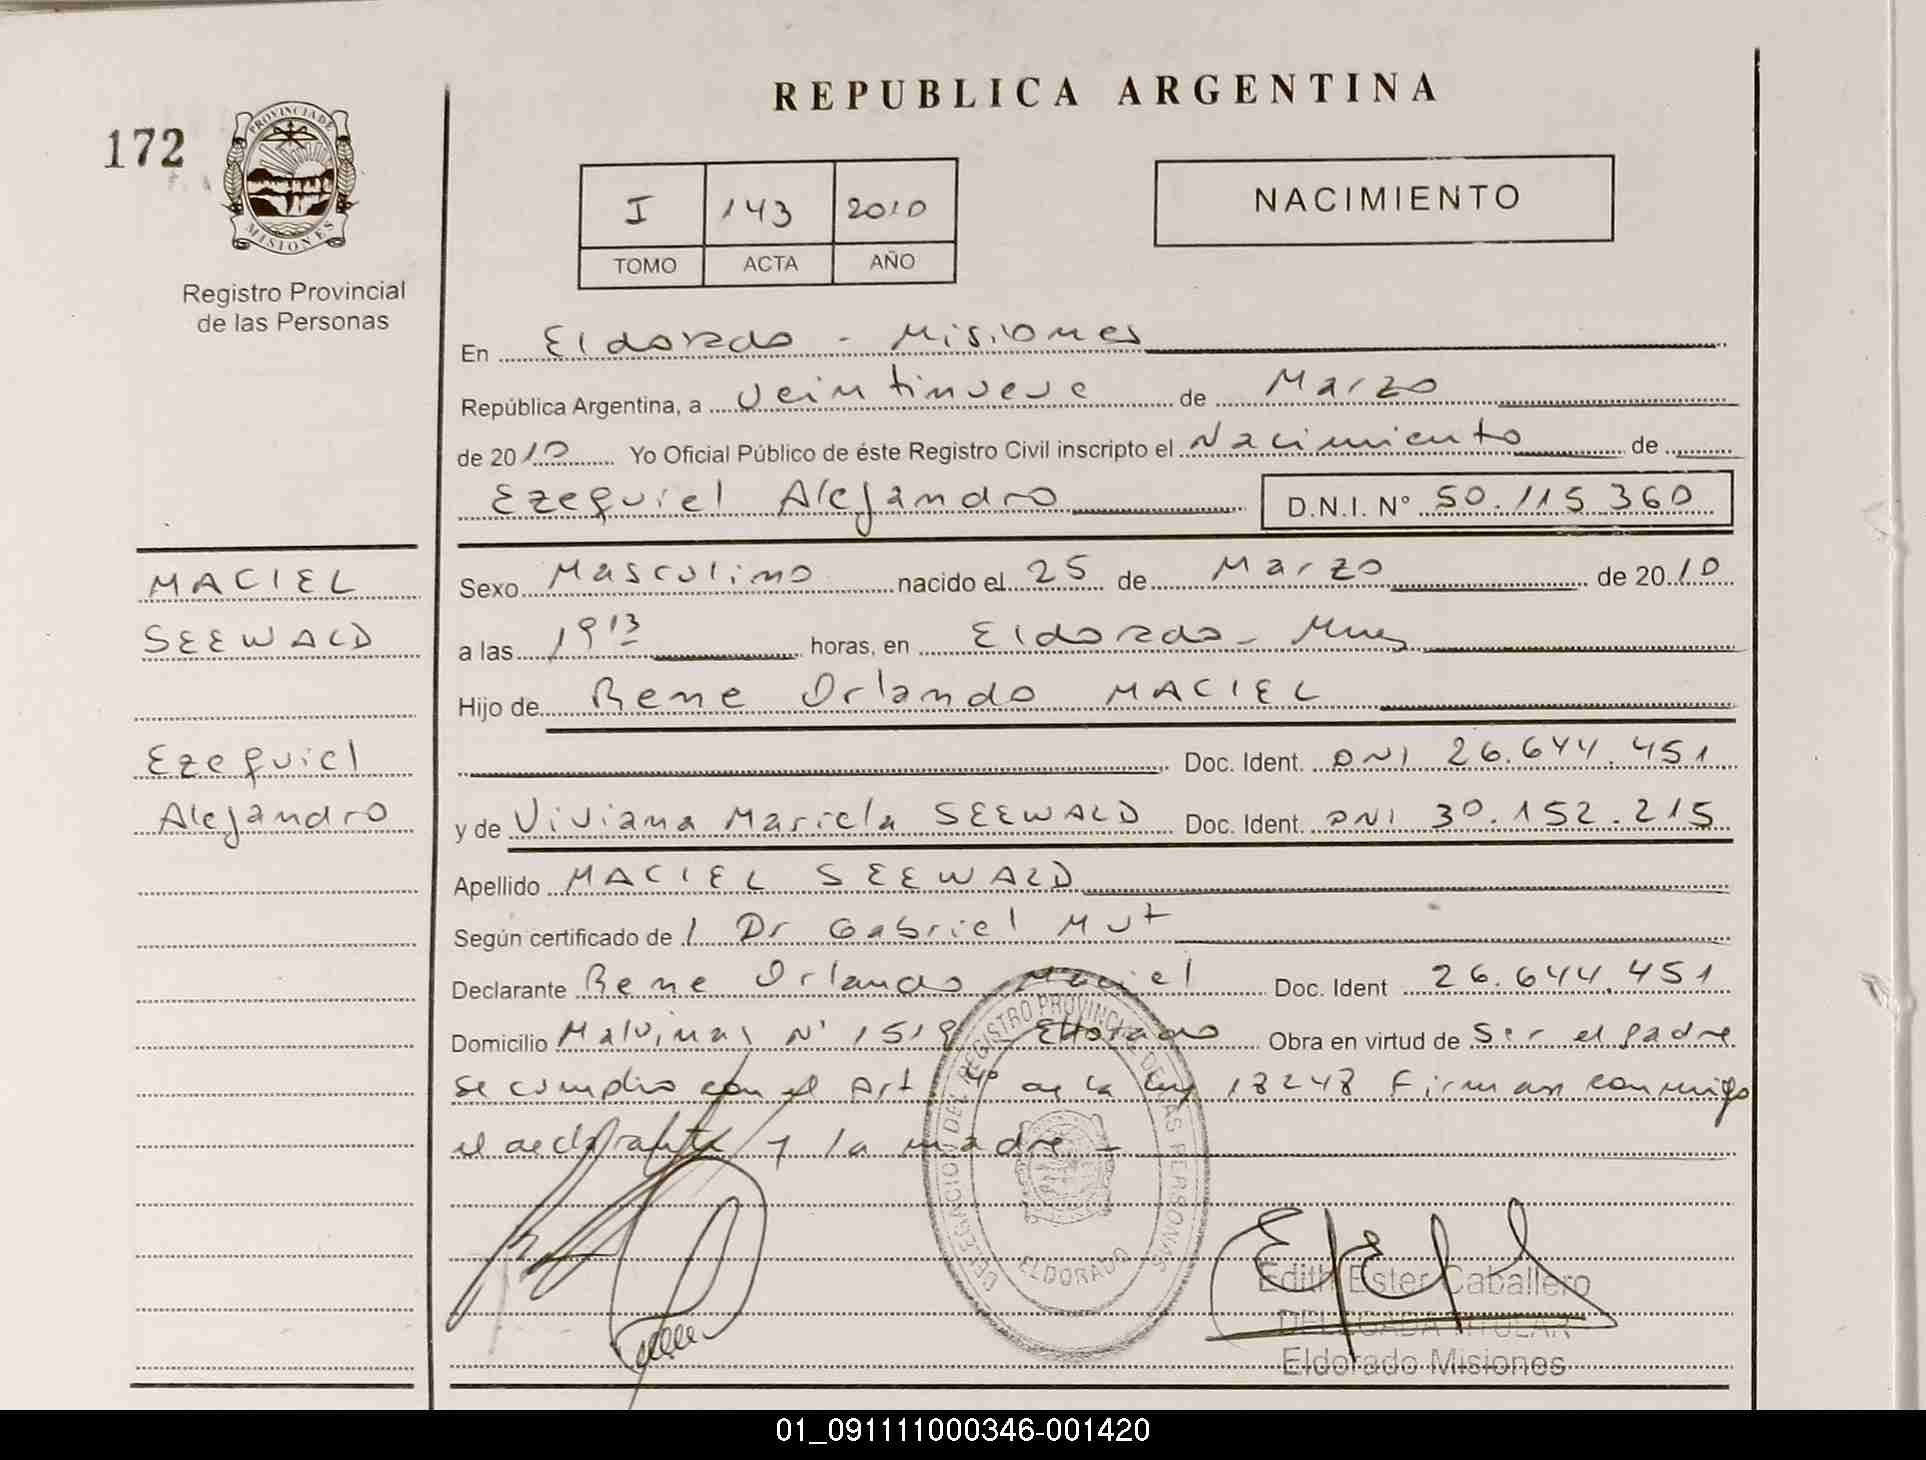 REPUBLICA ARGENTINA
172
PROVINCIA DE
MISIONES
Registro Provincial
de las Personas
I 143 2010
TOMO ACTA AÑO
NACIMIENTO
En Eldorado - Misiones
República Argentina, a veintinueve de Marzo
de 2010 Yo Oficial Público de éste Registro Civil inscripto el Nacimiento de
Ezequiel Alejandro D.N.I. N° 50.115.360
MACIEL
SEEWALD
Ezequiel
Alejandro
Sexo Masculino nacido el 25 de Marzo de 2010
a las 19 13 horas, en Eldorado - Mnes
Hijo de Rene Orlando MACIEL
Doc. Ident. DNI 26.644.451
y de Viviana Mariela SEEWALD Doc. Ident. DNI 30.152.215
Apellido MACIEL SEEWALD
Según certificado de l Dr Gabriel Mut
Declarante Rene Orlando Maciel Doc. Ident 26.644.451
Domicilio Malvinas N° 1519 Eldorado Obra en virtud de Ser el padre
Se cumplio con el Art 4° de la ley 18248 Firman conmigo
el declarante y la madre -
DELEGACION DEL REGISTRO PROVINCIAL DE LAS PERSONAS
ELDORADO
Edith Ester Caballero
DELEGADA TITULAR
Eldorado Misiones
01_091111000346-001420